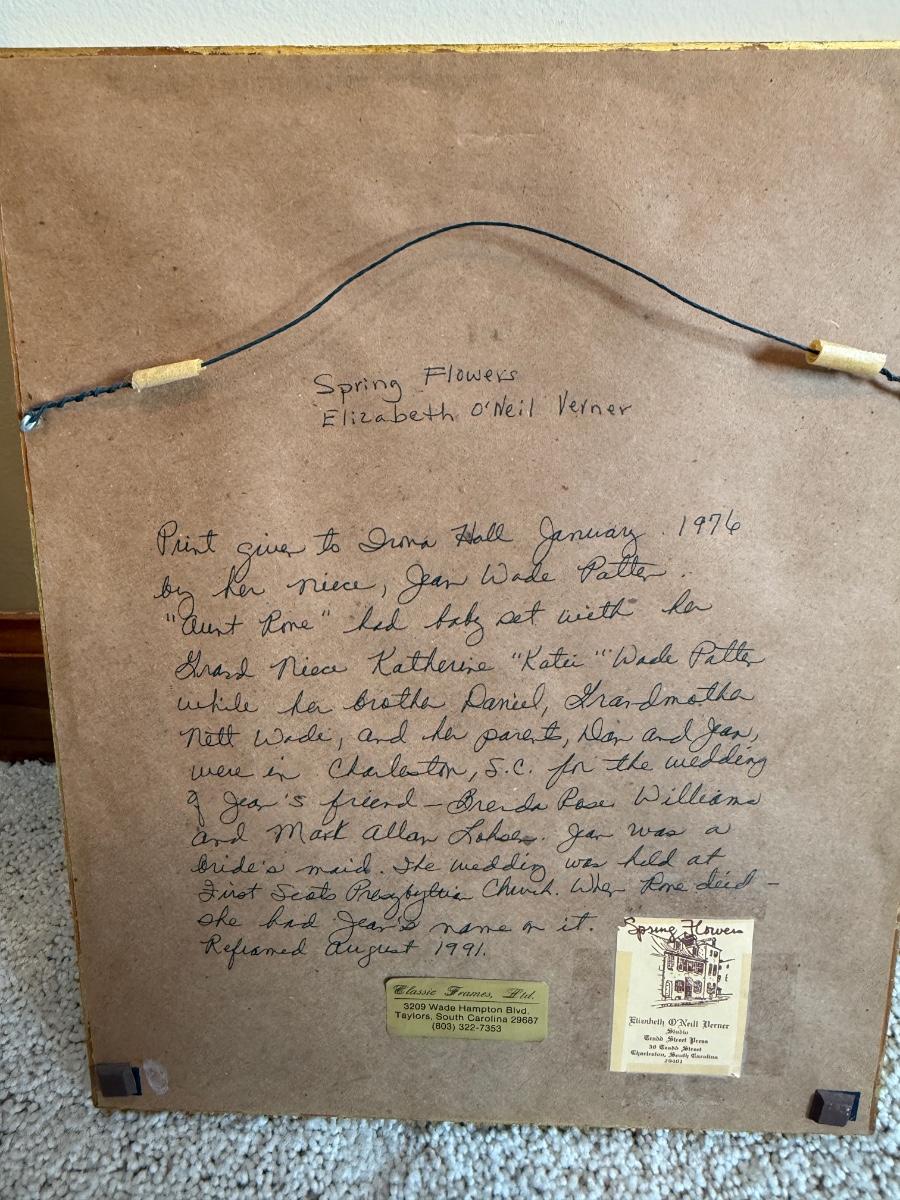 Spring Flowers
Elizabeth O'Neil Verner
Print given to Irona Hall January 1976
by her niece, Jean Wade Patten.
"Aunt Rone" had baby set with her
Grand Niece Katherine "Katie" Wade Patten
while her brother Daniel, Grandmother
Nett Wade, and her parents, Dan and Jean,
were in Charleston, S.C. for the wedding
of Jean's friend – Brenda Rose Williams
and Mark Allan Lohsen. Jean was a
bride's maid. The wedding was held at
First Scots Presbyterian Church. When Rone died –
she had Jean's name on it.
Reframed August 1991.
Classic Frames, Ltd.
3209 Wade Hampton Blvd.
Taylors, South Carolina 29687
(803) 322-7353
Spring Flowers
Elizabeth O'Neill Verner
Studio
Tradd Street Press
38 Tradd Street
Charleston, South Carolina
29401